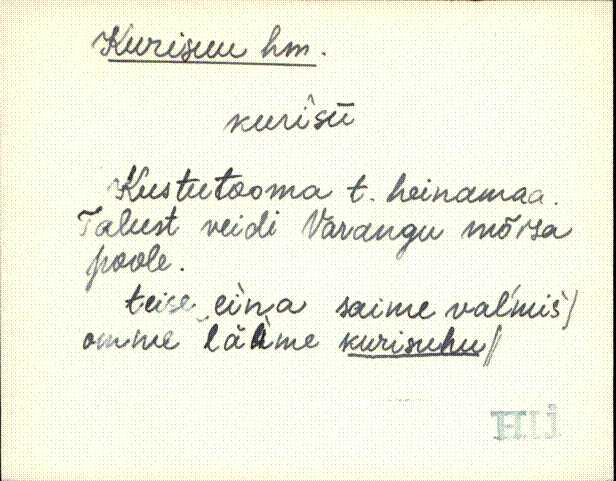 Kurisuu hm.
kurisū
Kustutooma t. heinamaa.
Talust veidi Varangu mõisa
poole.
teise eìna saime val'mis/
omme lähme kurisuhu//
HIj